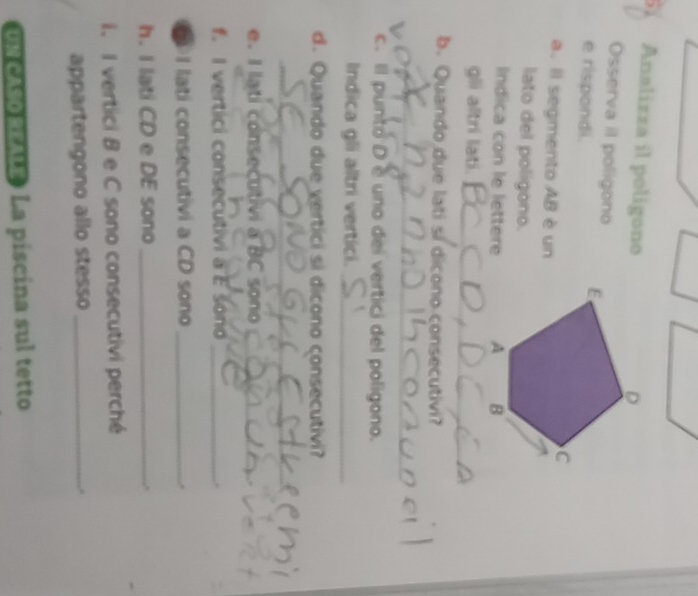 Analizza il poligono
Osserva il poligono
e rispondi.
E
D
C
A
B
a. Il segmento AB è un
lato del poligono.
Indica con le lettere
gli altri lati. BC CD, DE,
b. Quando due lati si dicono consecutivi?
hanno in comun il
c. Il punto D è uno dei vertici del poligono.
Indica gli altri vertici.
d. Quando due vertici si dicono consecutivi?
SE SONO GLI ESTREMI
e. I lati consecutivi a BC sono
f. I vertici consecutivi a E sono
I lati consecutivi a CD sono
h. I lati CD e DE sono
i. I vertici B e C sono consecutivi perché
appartengono allo stesso
UN CASO REALE La piscina sul tetto